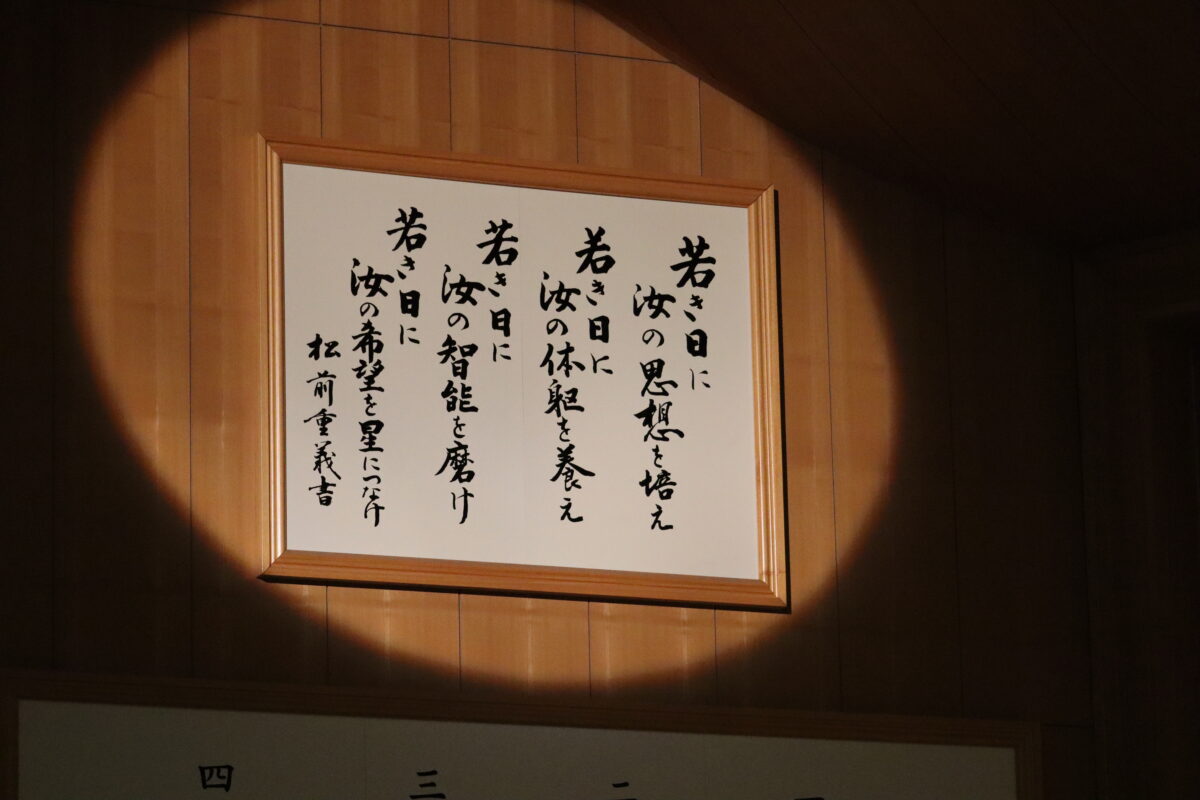 若き日に
汝の思想を培え
若き日に
汝の体躯を養え
若き日に
汝の智能を磨け
若き日に
汝の希望を星につなけ
松前重義書
二
三
四